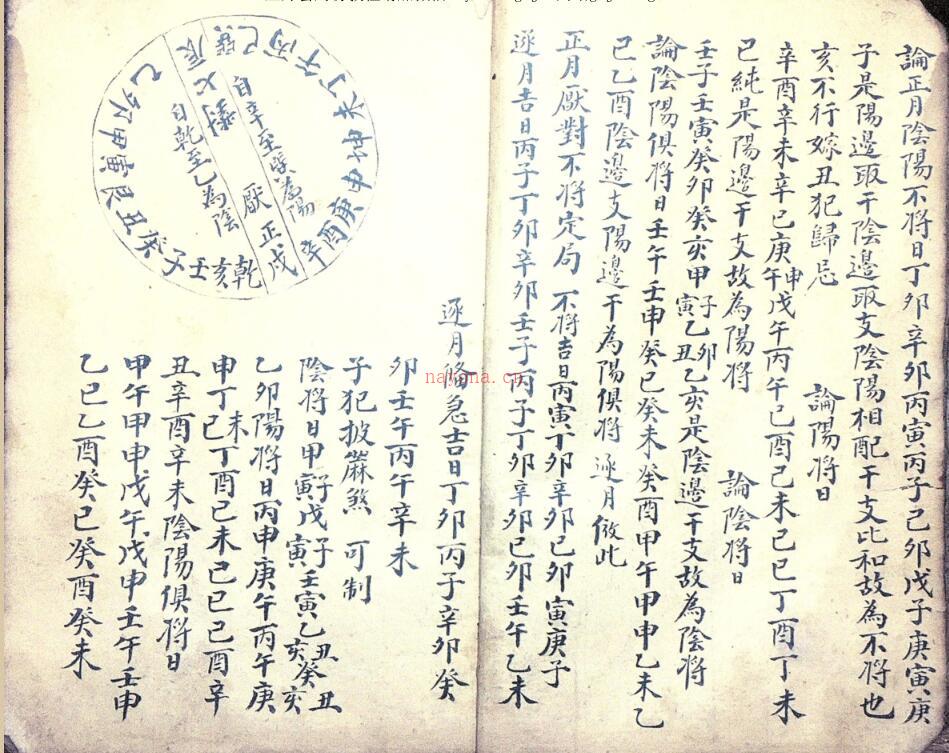 論正月陰陽不將日丁卯辛卯丙寅丙子己卯戊子庚寅庚
子是陽邊取干陰邊取支陰陽相配干支比和故為不將也
亥不行嫁丑犯歸忌 論陽將日
辛酉辛未辛巳庚午申戊午丙午己酉己未己巳丁酉丁未
巳純是陽邊干支故為陽將 論陰將日
壬子壬寅癸卯癸亥甲子寅乙卯丑乙亥是陰邊干支故為陰將
論陰陽俱將日壬午壬申癸巳癸未癸酉甲午甲申乙未乙
巳乙酉陰邊支陽邊干為陽俱將 逐月倣此
正月厭對不將定局 不將吉日丙寅丁卯辛卯己卯寅庚子
逐月吉日丙子丁卯辛卯壬子丙子丁卯辛卯己卯壬午乙未
逐月脩急吉日丁卯丙子辛卯癸
卯壬午丙午辛未
子犯披蔴煞 可制
陰將日甲寅子戊子寅壬寅乙丑亥癸丑亥
乙卯陽將日丙申庚午丙午庚
申丁未巳丁酉己未己巳己酉辛
丑辛酉辛未陰陽俱將日
甲午甲申戊午戊申壬午壬申
乙巳乙酉癸巳癸酉癸未
乙卯甲寅艮丑癸子壬亥乾
戌辛酉庚申坤未丁午丙巳巽辰
自辛至巽為陽
自乾至乙為陰
厭正
nayona.cn